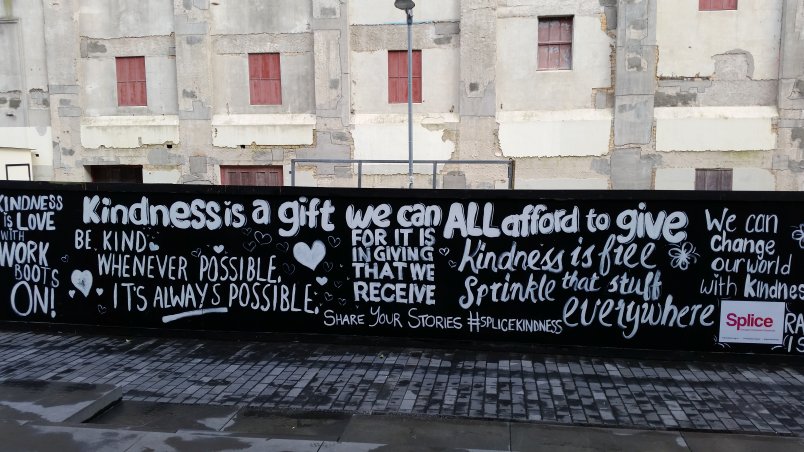 KINDNESS
is LOVE
WITH
WORK
BOOTS
ON!
Kindness is a gift we can ALL afford to give
BE KIND
WHENEVER POSSIBLE.
IT'S ALWAYS POSSIBLE.
FOR IT IS
IN GIVING
THAT WE
RECEIVE
Kindness is free
Sprinkle that stuff
everywhere
SHARE YOUR STORIES #SPLICEKINDNESS
We can
change
our world
with Kindness
Splice